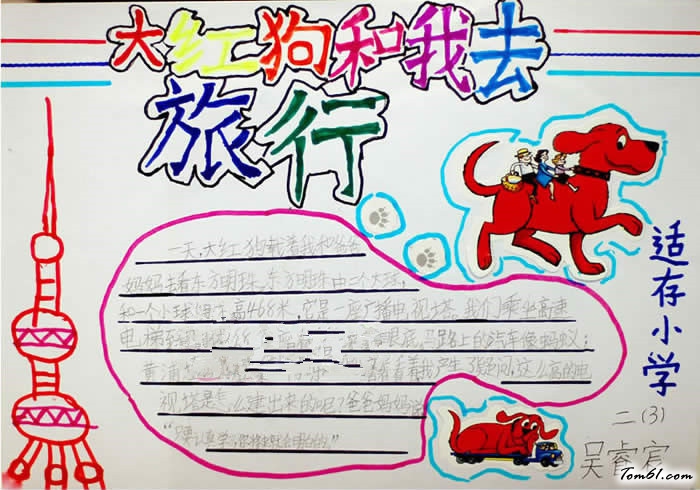 大红狗和我去
旅行
一天,大红狗载着我和爸爸
妈妈去看东方明珠。东方明珠由三个大球,
和一个小球组成高468米,它是一座广播电视塔。我们乘坐高速
电梯 眼底,马路上的汽车像蚂蚁;
黄浦 看着看着我产生了疑问,这么高的电
视塔是怎么建出来的呢?爸爸妈妈说
适存小学
二(3)
吴睿宸
Tom61.com